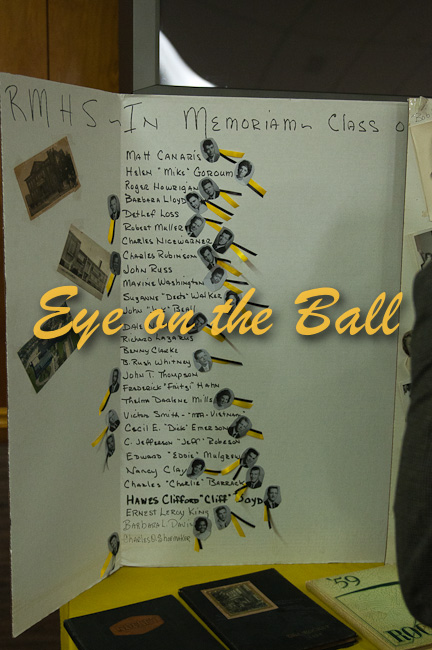 RMHS ~ In Memoriam ~ Class o
Matt Canaris
Helen "Mike" Goroum
Roger Hourigan
Barbara Lloyd
Detlef Loss
Robert Muller
Charles Nicewarner
Charles Robinson
John Russ
Maxine Washington
Suzanne "Deets" Walker
John Beall
Eye on the Ball
Richard Lazarus
Benny Clarke
B. Rush Whitney
John T. Thompson
Frederick "Fritzi" Hahn
Thelma Darlene Mills
Victor Smith - "MIA - Vietnam"
Cecil E. "Dick" Emerson
C. Jefferson "Jeff" Roberson
Edward "Eddie" Mulgrew
Nancy Clay
Charles "Charlie" Barrack
Hawes Clifford "Cliff" Boyd
Ernest Leroy King
Barbara L. Davis
Charles D. Shoemaker
'59